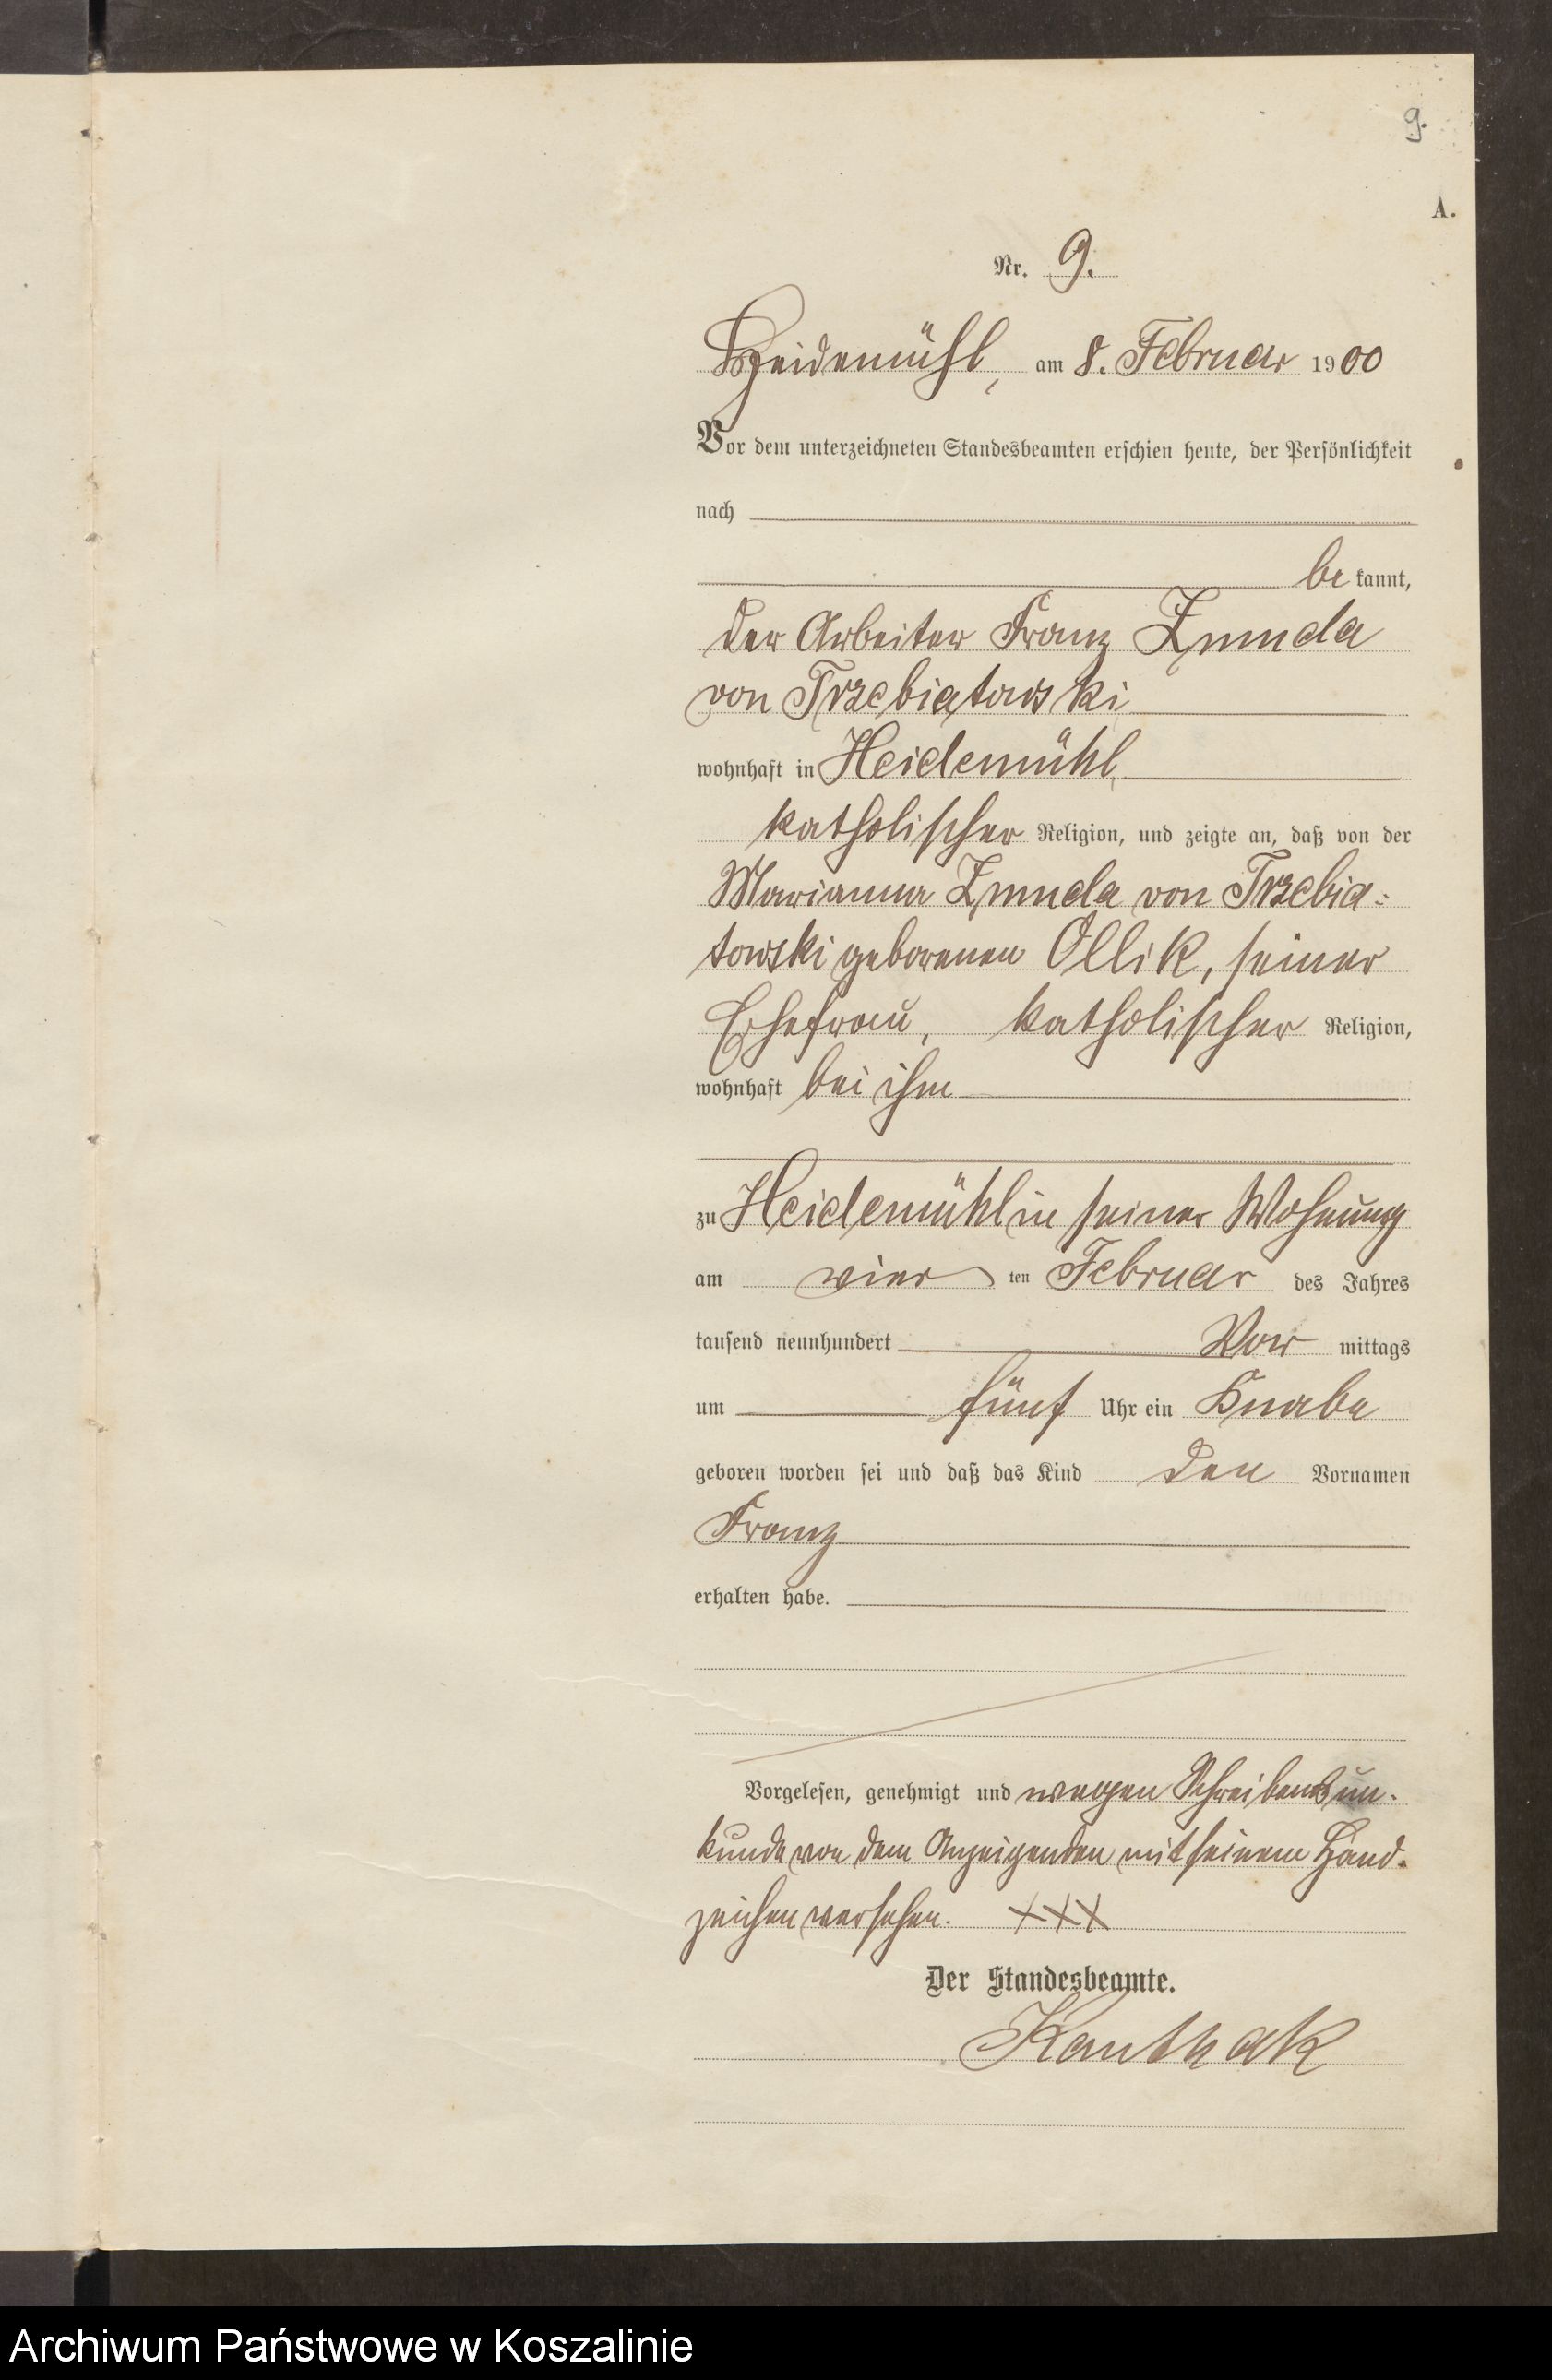 9.
A.
Nr. 9.
Heidemühl, am 8. Februar 1900
Vor dem unterzeichneten Standesbeamten erschien heute, der Persönlichkeit
nach
be kannt,
der Arbeiter Franz Zmuda
von Trzebiatowski
wohnhaft in Heidemühl,
katholischer Religion, und zeigte an, daß von der
Marianna Zmuda von Trzebia-
towski geborenen Ollik, seiner
Ehefrau, katholischer Religion,
wohnhaft bei ihm
zu Heidemühl in seiner Wohnung
am vier ten Februar des Jahres
tausend neunhundert Vor mittags
um fünf Uhr ein Knabe
geboren worden sei und daß das Kind den Vornamen
Franz
erhalten habe.
Vorgelesen, genehmigt und wegen Schreibensun-
kunde von dem Anzeigenden mit seinem Hand-
zeichen versehen. XXX
Der Standesbeamte.
Kanthak
Archiwum Państwowe w Koszalinie